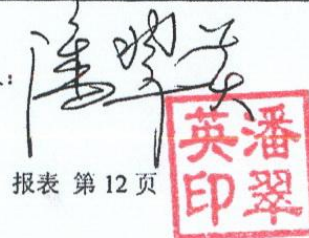 :
潘翠英
报表 第 12 页
潘翠
英印